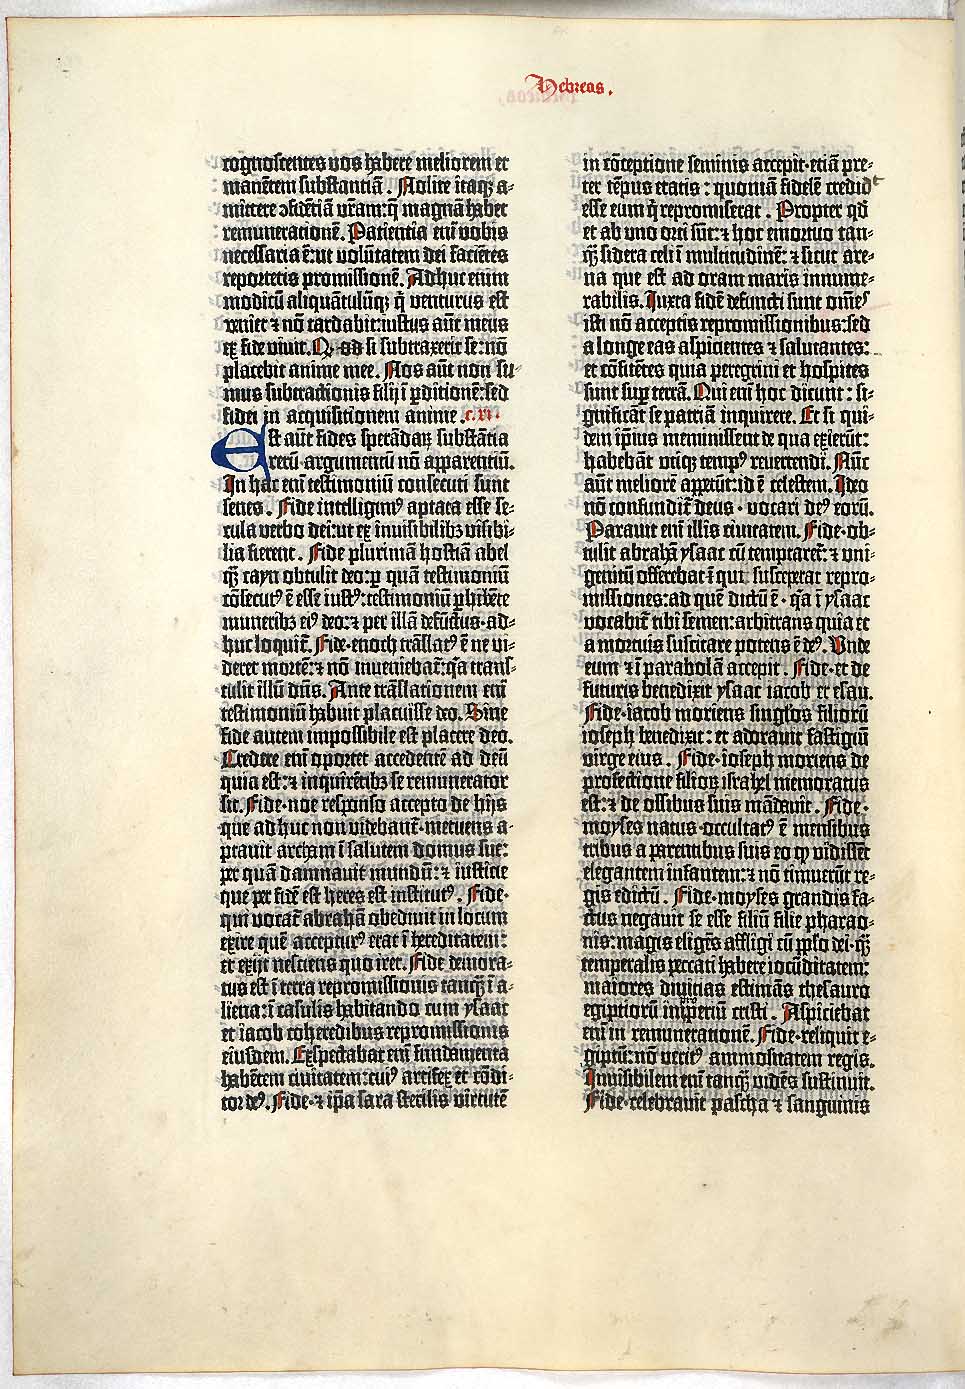 Hebreos.
cognoscentes vos habere meliorem et
manētem substantiā. Nolite itaqꝫ a-
mittere ↄfidētiā vr̄am: q̄ magnā habet
remuneracionē. Patientia em̄ vobis
necessaria ē: ut volūtatem dei faciētes
reportetis promissionē. Adhuc enim
modicū aliquātulūqꝫ q̄ venturus est
veniet ⁊ nō tardabit: iustus aūt meus
ex fide vivit. Q od si subtraxerit se: nō
placebit anime mee. Nos aūt non su-
mus subtractionis filij ī ꝑditionē: sed
fidei in acquisitionem anime. c. xi.
Est aūt fides sperādaꝝ substātia
rerū argumentū nō apparentiū.
In hac em̄ testimoniū consecuti sunt
senes. Fide intelligimꝰ aptata esse se-
cula verbo dei: ut ex īvisibilibꝫ visibi-
lia fierent. Fide plurimā hostiā abel
qꝫ̄ cayn obtulit deo: ꝑ quā testimoniū
cōsecutꝰ ē esse iustꝰ: testimoniū ꝑhibēte
muneribꝫ eiꝰ deo: ⁊ per illā defūctus ad-
huc loquit̄. Fide enoch trāslatꝰ ē ne vi-
deret mortē: ⁊ nō inveniebat̄: q̄a trans-
tulit illū dn̄s. Ante trāslationem em̄
testimoniū habuit placuisse deo. Sine
fide autem impossibile est placere deo.
Credere em̄ oportet accedentē ad deū
quia est: ⁊ inquirētibꝫ se remunerator
sit. Fide noe responso accepto de hijs
que adhuc non videbant̄ metuens a-
ptavit archam ī salutem domus sue:
per quā damnavit mundū: ⁊ iusticie
que per fidē est heres est institutꝰ. Fide
qui vocat̄ abrahā obedivit in locum
exire quē accepturꝰ erat ī hereditatem:
et exijt nesciens quo iret. Fide demora-
tus est ī terra repromissionis tanqꝫ̄ ī a-
liena: ī casulis habitando cum ysaac
et iacob coheredibus repromissionis
eiusdem. Expectabat em̄ fundamenta
habētem civitatem: cuiꝰ artifex et cōdi-
tor deꝰ. Fide ⁊ ip̄a sara sterilis virtutē
in cōceptione seminis accepit etiā pre-
ter tēpus etatis: quoniā fidelē credidᵗ
esse eum q̄ repromiserat. Propter qd̄
et ab uno orti sūt: ⁊ hoc emortuo tan-
qꝫ̄ sidera celi ī multitudinē: ⁊ sicut are-
na que est ad oram maris innume-
rabilis. Juxta fidē defuncti sunt omēs
isti nō acceptis repromissionibus: sed
a longe eas aspicientes ⁊ salutantes:
et cōfitētes quia peregrini et hospites
sunt suꝑ terrā. Qui em̄ hoc dicunt: si-
gnificāt se patriā inquirere. Et si qui-
dem ip̄ius meminissent de qua exierūt:
habebāt utiqꝫ tempꝰ revertendi. Nūc
aūt meliorē appetūt: id ē celestem. Ideo
nō confundit̄ deus vocari deꝰ eorū.
Paravit em̄ illis civitatem. Fide ob-
tulit abrahā ysaac cū temptaret̄: ⁊ uni-
genitū offerebat ī qui susceperat repro-
missiones: ad quē dictū ē q̄a ī ysaac
vocabit̄ tibi semen: arbitrans quia et
a mortuis suscitare potens ē deꝰ. Unde
eum ⁊ ī parabolā accepit. Fide et de
futuris benedixit ysaac iacob et esau.
Fide iacob moriens singlos filiorū
ioseph benedixit: et adoravit fastigiū
virge eius. Fide ioseph moriens de
profectione filioꝝ israhel memoratus
est: ⁊ de ossibus suis mādavit. Fide
moyses natus occultatꝰ ē mensibus
tribus a parentibus suis eo qꝙ vidissēt
elegantem infantem: ⁊ nō timuerūt re-
gis edictū. Fide moyses grandis fa-
ctus negavit se esse filiū filie pharao-
nis: magis eligēs affligi cū ppl̄o dei qꝫ̄
temperalis peccati habere iocūditatem:
maiores divitias estimās thesauro
egiptiorū imperiū cristi. Aspiciebat
em̄ in remuneratione. Fide reliquit e-
giptū: nō veritꝰ animositatem regis.
Invisibilem em̄ tanqꝫ̄ vidēs sustinuit.
Fide celebravit pascha ⁊ sanguinis